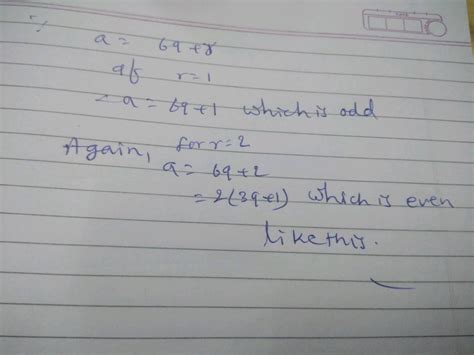 ∵
a = 6q + r
if r = 1
∴ a = 6q + 1 which is odd
Again, for r = 2
a = 6q + 2
= 2(3q+1) which is even
like this.